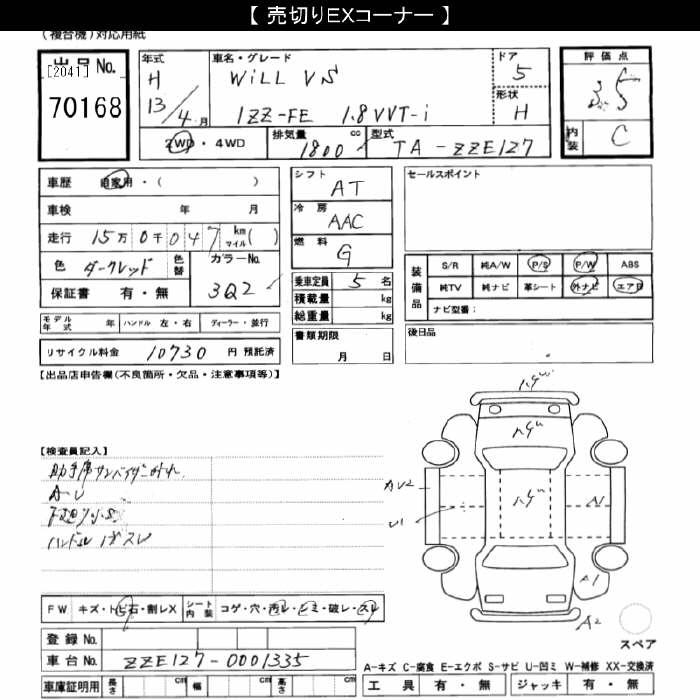 【 売切りEXコーナー 】
(複合機)対応用紙
出品 No.
[2041]
70168
年式
H
13/4月
車名・グレード
WiLL VS
1ZZ-FE 1.8VVT-i
ドア
5
形状
H
評価点
3.5
内装
C
2WD・4WD
排気量
1800
cc
型式
TA-ZZE127
車歴 自家用・( )
車検 年 月
走行 15万0千047 km マイル( )
色 ダークレッド 色替 カラーNo.
3Q2
保証書 有・無
シフト
AT
冷房
AAC
燃料
G
乗車定員 5 名
積載量 kg
総重量 kg
書類期限
月 日
セールスポイント
装備品
S/R 純A/W P/S P/W ABS
純TV 純ナビ 革シート 外ナビ エアB
ナビ型番:
後日品
モデル年式 年 ハンドル 左・右 ディーラー・並行
リサイクル料金 10730 円 預託済
【出品店申告欄(不良箇所・欠品・注意事項等)】
【検査員記入】
助手席サンバイザー外れ
AU
ハンドル ハゲスレ
ハゲ
ハゲ
AU2
U1
A1
A1
A2
スペア
FW キズ・トビ石・割レX シート内装 コゲ・穴・汚レ・シミ・破レ・スレ
登録 No.
車台 No. ZZE127-0001335
車庫証明用 長さ cm 幅 cm 高さ cm
A-キズ C-腐食 E-エクボ S-サビ U-凹ミ W-補修 XX-交換済
工具 有・無 ジャッキ 有・無